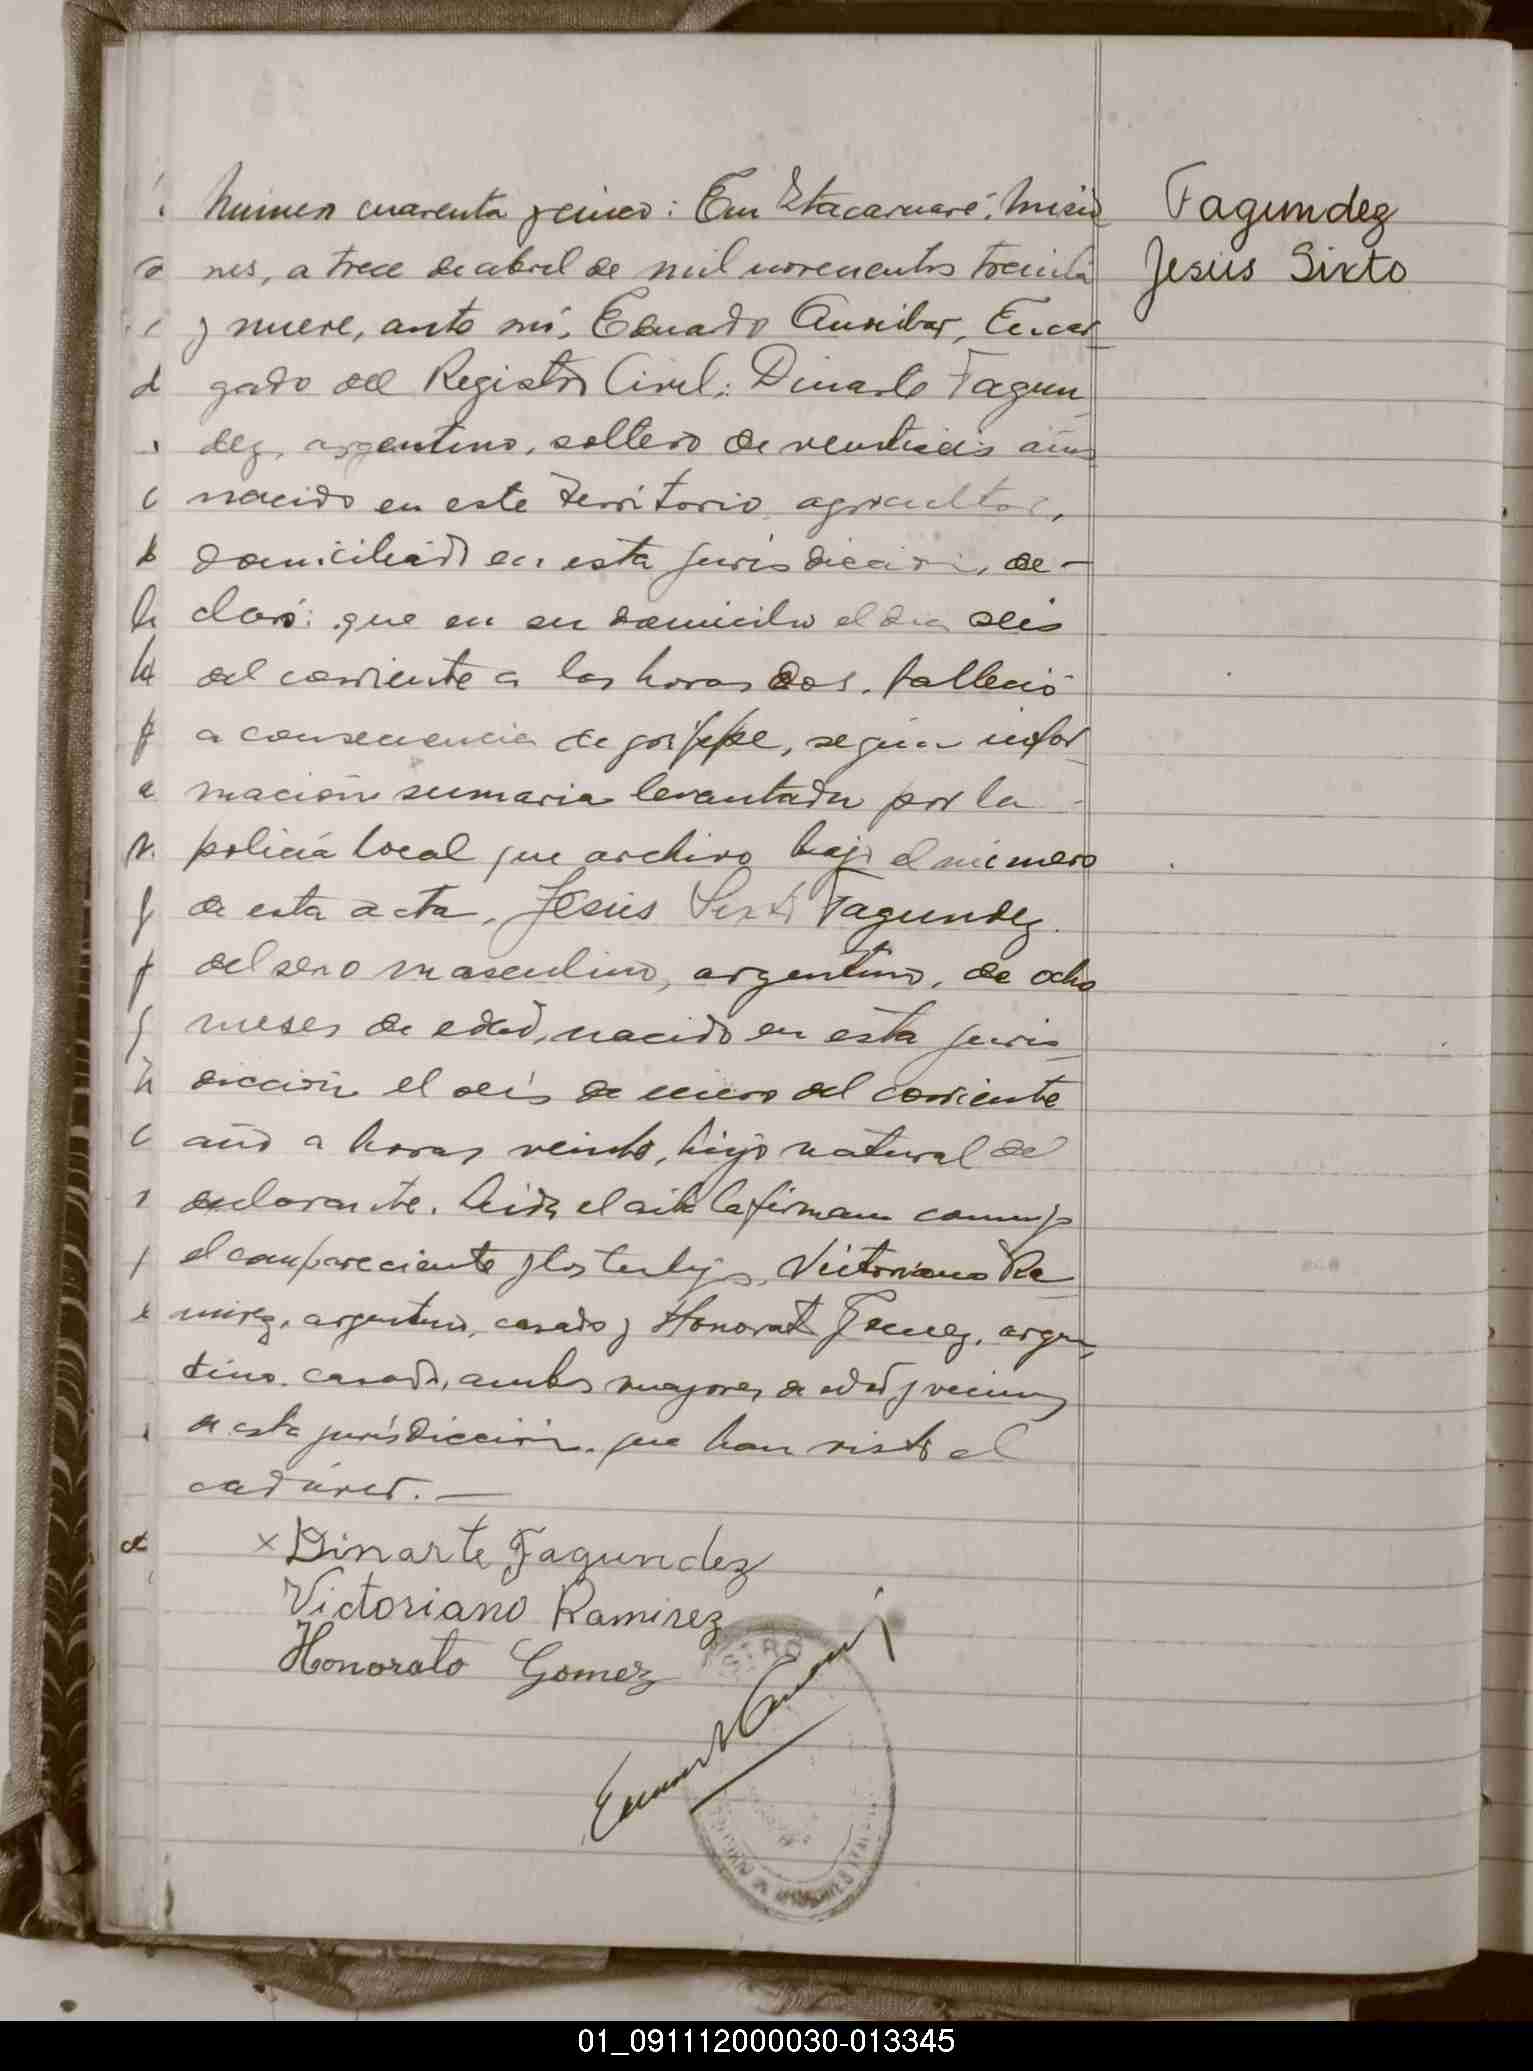 Número cuarenta y cinco: En Itacaruaré, Misio
nes, a trece de abril de mil novecientos treinta
y nueve, ante mí, Eduardo Encar
gado del Registro Civil: Dinarte Fagun
dez, argentino, soltero de veintiseis años
nacido en este Territorio agricultor,
domiciliado en esta jurisdicción, de-
claró: que en su domicilio el día seis
del corriente a las horas dos, falleció
a consecuencia de grippe, según infor
mación sumaria levantada por la
policía local que archivo bajo el número
de esta acta, Jesús Sixto Fagundez
del sexo masculino, argentino, de ocho
meses de edad, nacido en esta juris
dicción el seis de enero del corriente
año a horas veinte, hijo natural del
declarante. Leida el acta la firman conmigo
el compareciente y los testigos, Victoriano Ra
mirez, argentino, casado y Honorato Gomez, argen
tino casado, ambos mayores de edad y vecinos
de esta jurisdicción que han visto el
cadáver. —
x Dinarte Fagundez
Victoriano Ramirez
Honorato Gomez
Fagundez
Jesús Sixto
01_091112000030-013345